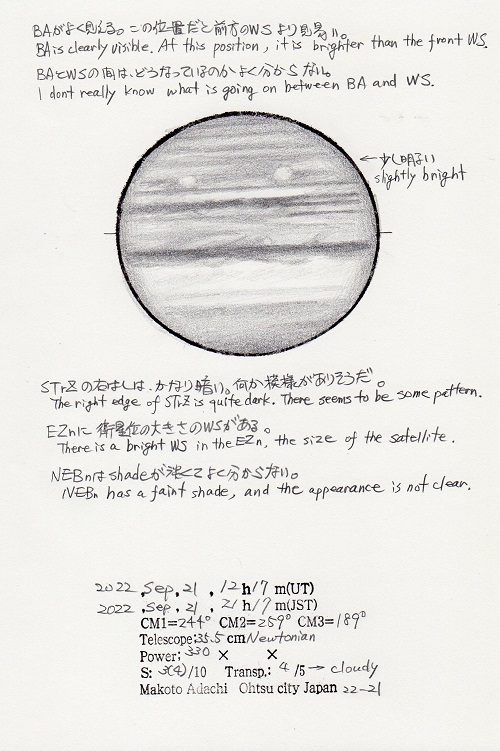 BAがよく見える。この位置だと前方のWSより見易い。
BA is clearly visible. At this position, it is brighter than the front WS.
BAとWSの間は、どうなっているのかよく分からない。
I dont really know what is going on between BA and WS.
← 少し明るい
slightly bright
STrZの右はしは、かなり暗い。何か模様がありそうだ。
The right edge of STrZ is quite dark. There seems to be some pattern.
EZnに衛星位の大きさのWSがある。
There is a bright WS in the EZn, the size of the satellite.
NEBnはshadeが淡くてよく分からない。
NEBn has a faint shade, and the appearance is not clear.
2022, Sep, 21, 12h17m(UT)
2022, Sep, 21, 21h17m(JST)
CM1=244° CM2=259° CM3=189°
Telescope;35.5cm Newtonian
Power; 330 × ×
S: 3(4)/10 Transp.: 4/5→cloudy
Makoto Adachi Ohtsu city Japan 22-21